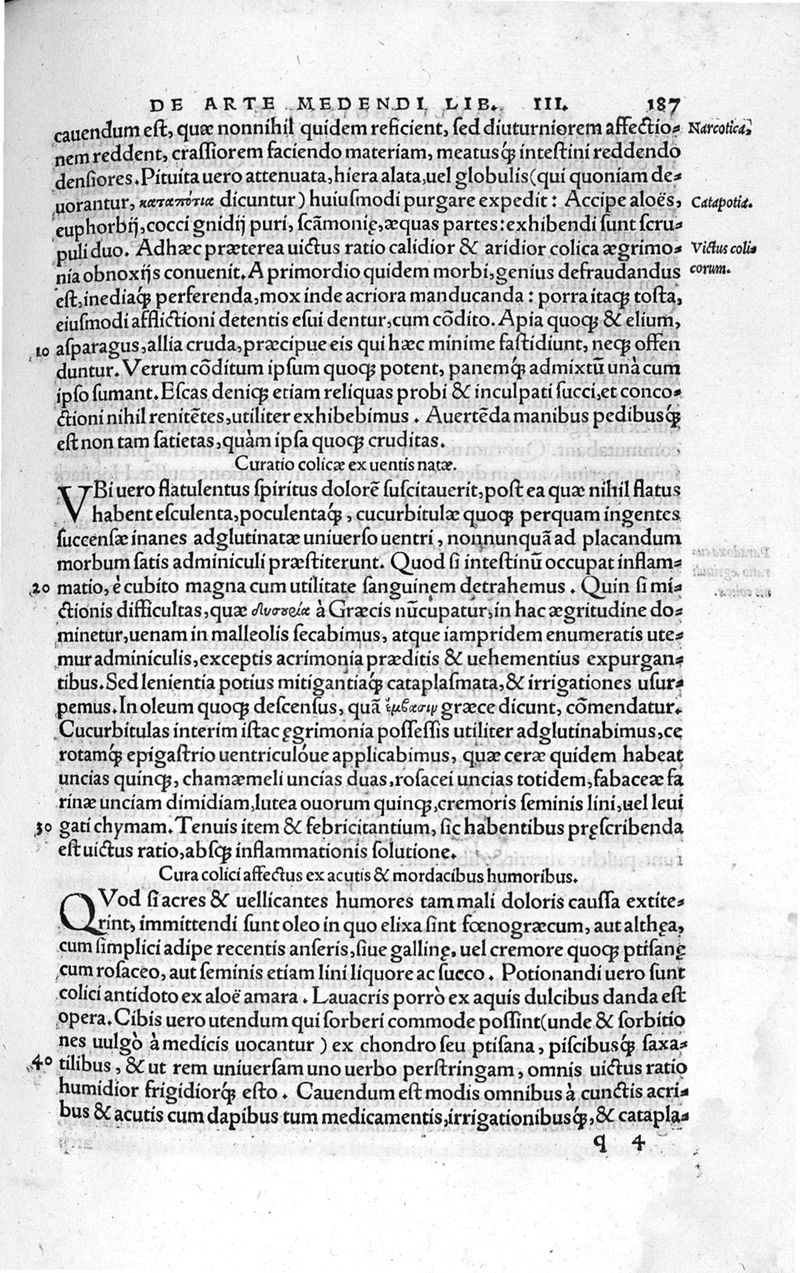 DE ARTE MEDENDI LIB. III. 187
cauendum eſt, quæ nonnihil quidem reficient, ſed diuturniorem affectio- Narcotica,
nem reddent, craſſiorem faciendo materiam, meatusq́ꝫ inteſtini reddendo
denſiores. Pituita uero attenuata, hiera alata, uel globulis (qui quoniam de-
uorantur, καταπότια dicuntur) huiuſmodi purgare expedit: Accipe aloës, Catapotia.
euphorbij, cocci gnidij puri, ſcãmonię, æquas partes: exhibendi ſunt ſcru-
puli duo. Adhæc præterea uictus ratio calidior & aridior colica ægrimo- Victus coli-
nia obnoxijs conuenit. A primordio quidem morbi, genius defraudandus corum.
eſt, inediaq́ꝫ perferenda, mox inde acriora manducanda: porra itaqꝫ toſta,
eiuſmodi afflictioni detentis eſui dentur, cum cõdito. Apia quoqꝫ & elium,
10 aſparagus, allia cruda, præcipue eis qui hæc minime faſtidiunt, neqꝫ offen
duntur. Verum cõditum ipſum quoqꝫ potent, panemq́ꝫ admixtũ unà cum
ipſo ſumant. Eſcas deniqꝫ etiam reliquas probi & inculpati ſucci, et conco-
ctioni nihil renitẽtes, utiliter exhibebimus. Auertẽda manibus pedibusq́ꝫ
eſt non tam ſatietas, quàm ipſa quoqꝫ cruditas.
Curatio colicæ ex uentis natæ.
VBi uero flatulentus ſpiritus dolorẽ ſuſcitauerit, poſt ea quæ nihil flatus
habent eſculenta, poculentaq́ꝫ, cucurbitulæ quoqꝫ perquam ingentes
ſuccenſæ inanes adglutinatæ uniuerſo uentri, nonnunquã ad placandum
morbum ſatis adminiculi præſtiterunt. Quod ſi inteſtinũ occupat inflam-
20 matio, è cubito magna cum utilitate ſanguinem detrahemus. Quin ſi mi-
ctionis difficultas, quæ δυσουρία à Græcis nũcupatur, in hac ægritudine do-
minetur, uenam in malleolis ſecabimus, atque iampridem enumeratis ute-
mur adminiculis, exceptis acrimonia præditis & uehementius expurgan-
tibus. Sed lenientia potius mitigantiaq́ꝫ cataplaſmata, & irrigationes uſur-
pemus. In oleum quoqꝫ deſcenſus, quã ἔμβασιν græce dicunt, cõmendatur.
Cucurbitulas interim iſtac ęgrimonia poſſeſſis utiliter adglutinabimus, ce
rotamq́ꝫ epigaſtrio uentriculóue applicabimus, quæ ceræ quidem habeat
uncias quinqꝫ, chamæmeli uncias duas, roſacei uncias totidem, fabaceæ fa
rinæ unciam dimidiam, lutea ouorum quinqꝫ, cremoris ſeminis lini, uel leui
30 gati chymam. Tenuis item & febricitantium, ſic habentibus pręſcribenda
eſt uictus ratio, abſqꝫ inflammationis ſolutione.
Cura colici affectus ex acutis & mordacibus humoribus.
QVod ſi acres & uellicantes humores tam mali doloris cauſſa extite-
rint, immittendi ſunt oleo in quo elixa ſint fœnogræcum, aut althęa,
cum ſimplici adipe recentis anſeris, ſiue gallinę, uel cremore quoqꝫ ptiſanę
cum roſaceo, aut ſeminis etiam lini liquore ac ſucco. Potionandi uero ſunt
colici antidoto ex aloë amara. Lauacris porrò ex aquis dulcibus danda eſt
opera. Cibis uero utendum qui ſorberi commode poſſint (unde & ſorbitio
nes uulgò à medicis uocantur) ex chondro ſeu ptiſana, piſcibusq́ꝫ ſaxa-
40 tilibus, & ut rem uniuerſam uno uerbo perſtringam, omnis uictus ratio
humidior frigidiorq́ꝫ eſto. Cauendum eſt modis omnibus à cunctis acri-
bus & acutis cum dapibus tum medicamentis, irrigationibusq́ꝫ, & catapla-
q 4